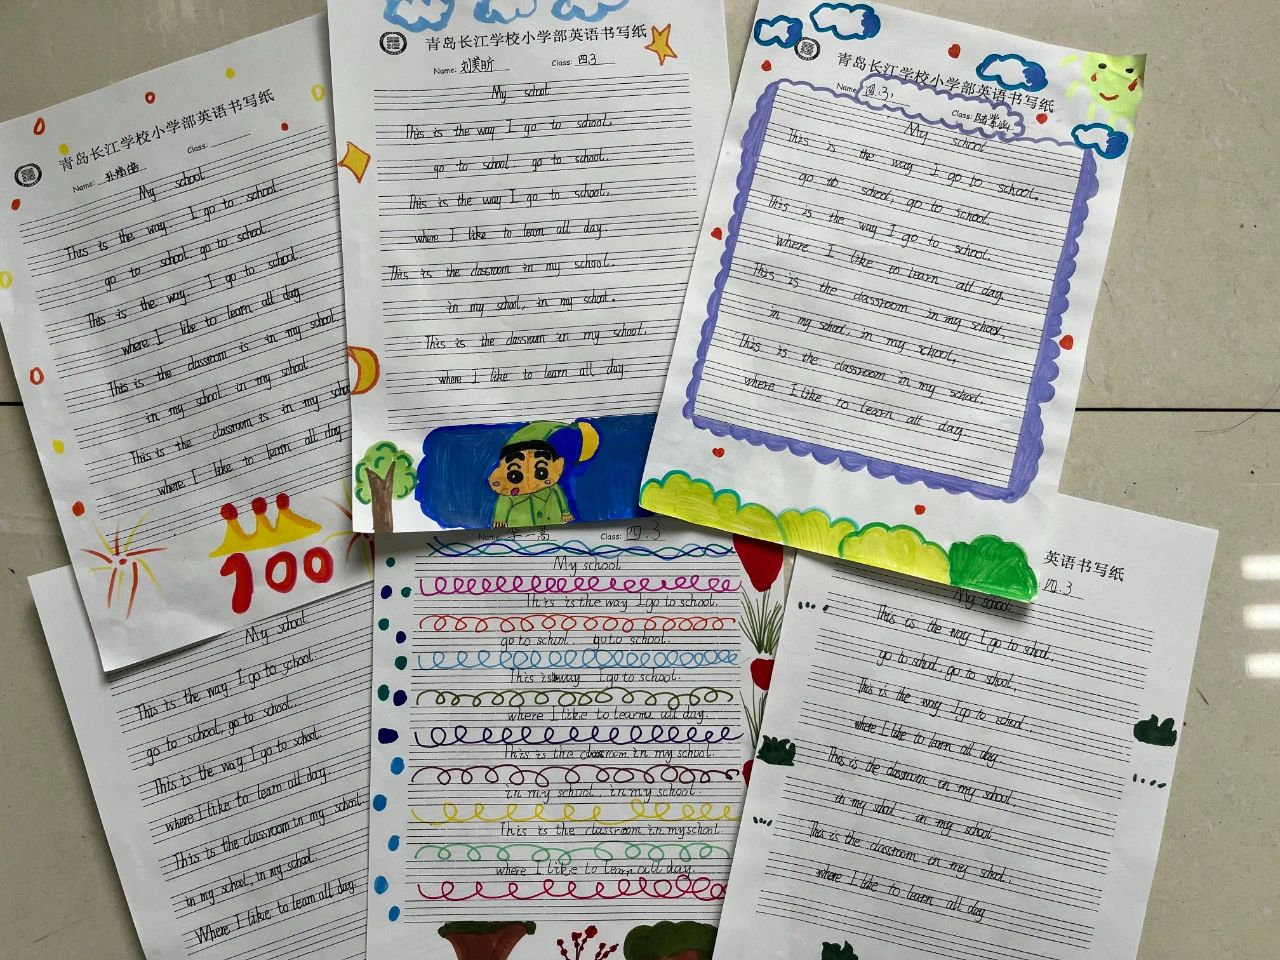 青岛长江学校小学部英语书写纸
Name:
Class:
My school
This is the way. I go to school
go to school. go to school.
This is the way I go to school.
where I like to learn all day.
This is the classroom is in my school
in my school. in my school
This is the classroom is in my scho
where I like to learn all day
100
青岛长江学校小学部英语书写纸
Name: 刘美昕 Class: 四3
My school
This is the way I go to school.
go to school go to school.
This is the way I go to school.
where I like to learn all day.
This is the classroom in my school.
in my school, in my school.
This is the classroom in my school.
where I like to learn all day
青岛长江学校小学部英语书写纸
Name: 四.3
Class:
My school
This is the way I go to school.
go to school, go to school
This is the way I go to school.
where I like to learn all day.
This is the classroom in my school,
in my school, in my school,
This is the classroom in my school.
where I like to learn all day.
My school
This is the way I go to school.
go to school, go to school.
This is the way I go to school.
where I like to learn all day.
This is the classroom in my school.
in my school, in my school.
Where I like to learn all day.
Name: 李一諾 Class: 四.3
My school
This is the way I go to school.
go to school. go to school.
This is way I go to school.
where I like to learna all day.
This is the classroom in my school.
in my school in my school.
This is the classroom in my school.
where I like to learn all day.
英语书写纸
四.3
My school
This is the way I go to school,
go to school, go to school,
This is the way I go to school,
where I like to learn all day
This is the classroom in my school,
in my school, in my school
This is the classroom in my school,
where I like to learn all day